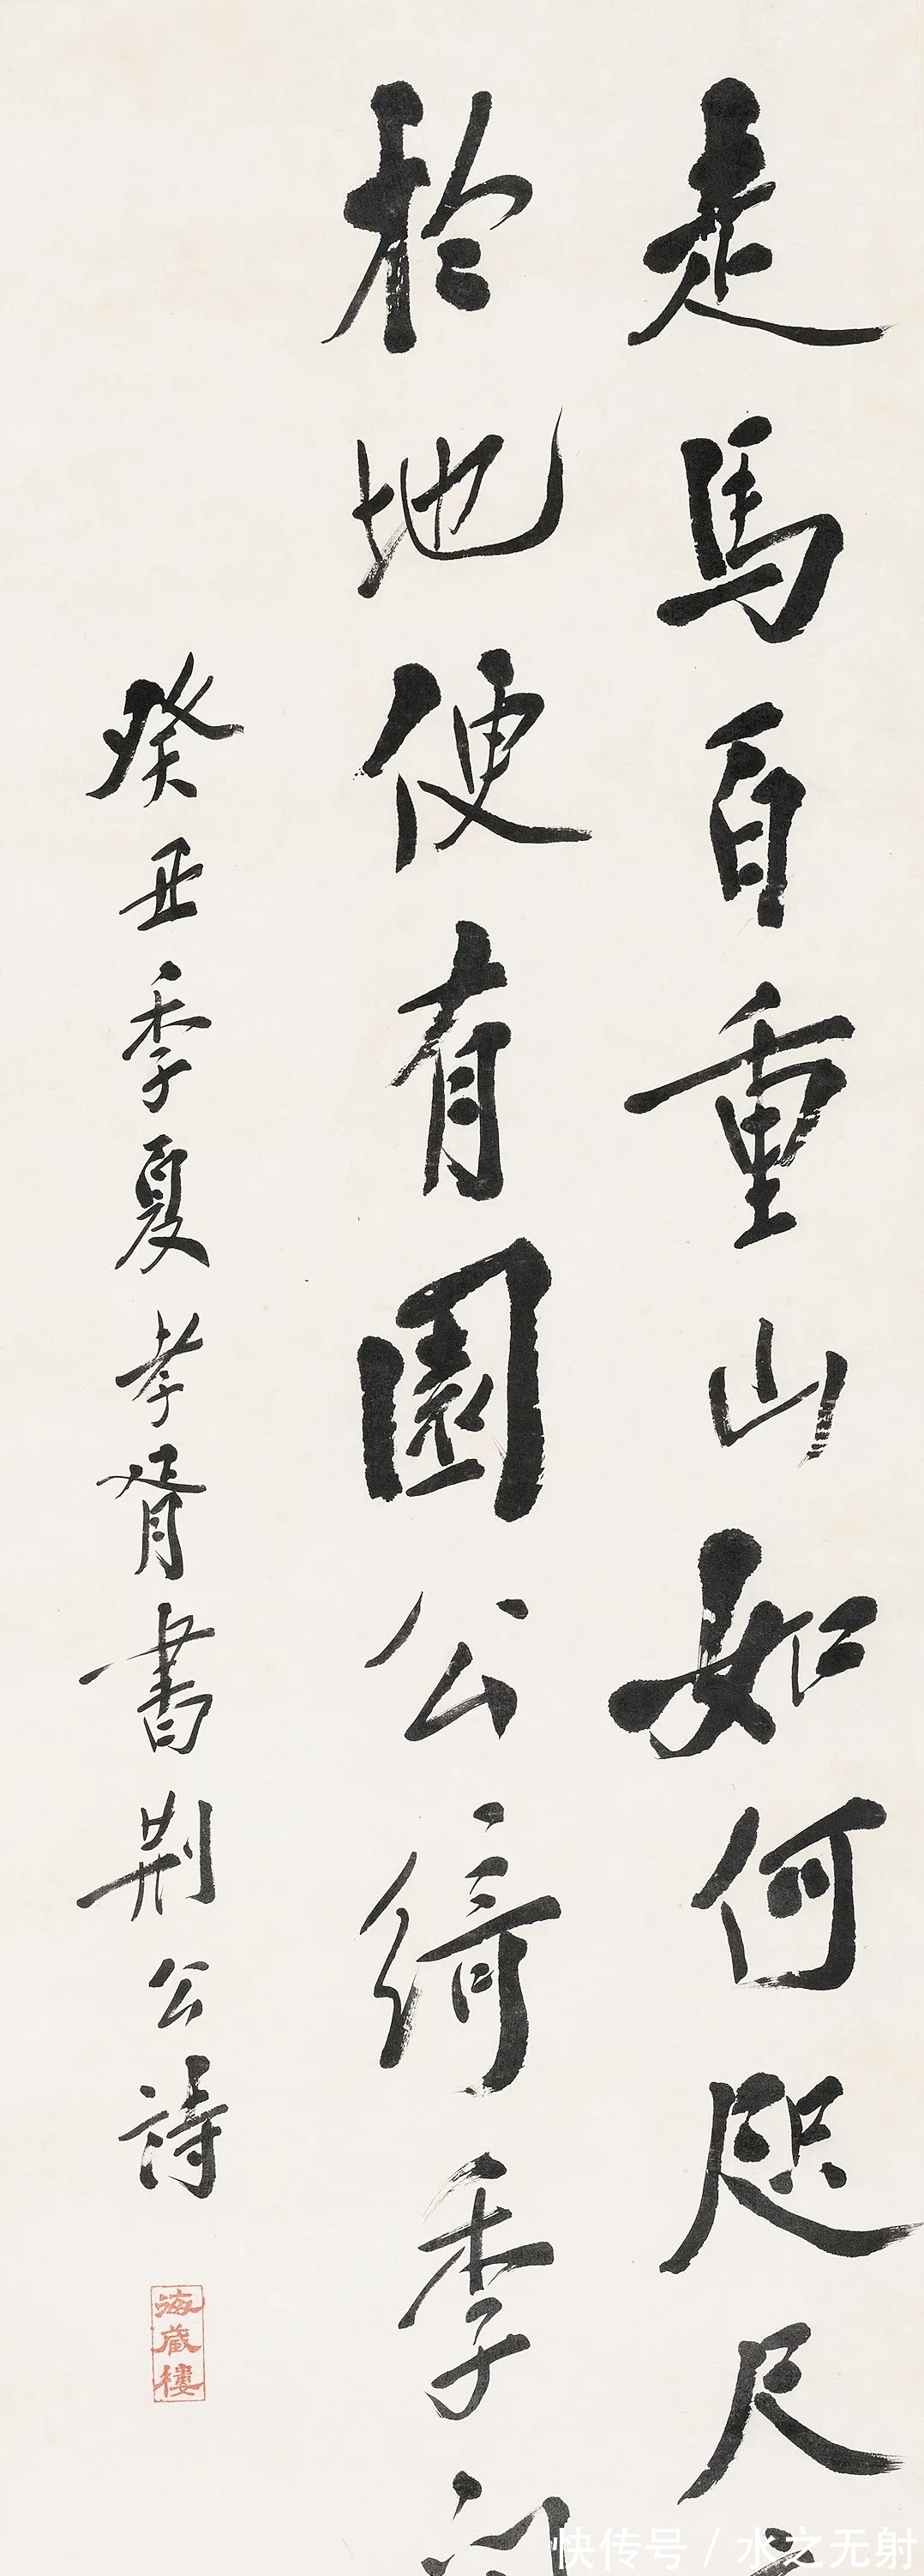 走馬百重山如何咫尺
於地便有園公綺季
癸丑季夏孝胥書荆公詩
海藏樓
快传号 / 水之无射